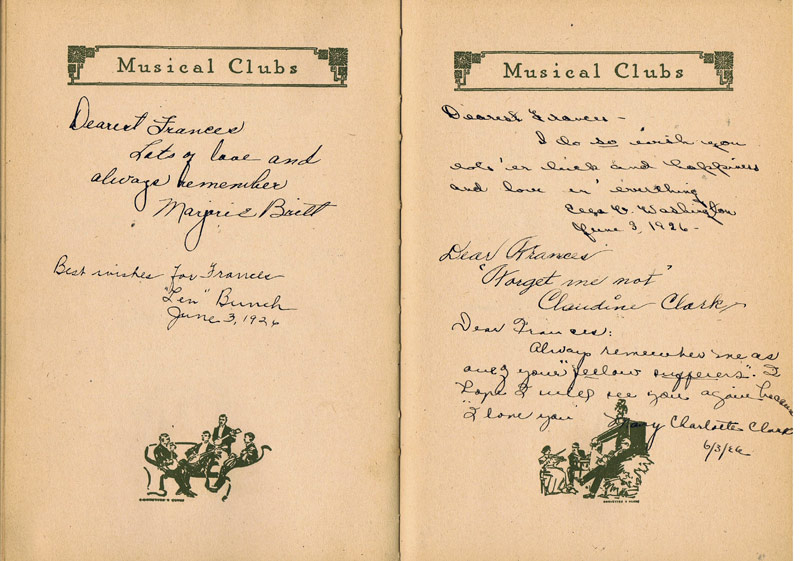 Musical Clubs
Dearest Frances
Lots of love and
always remember
Marjorie Britt
Best wishes for Frances
"Len" Bunch
June 3, 1926
Musical Clubs
Dearest Frances -
I do so wish you
lots 'er luck and happiness
and love en' everything
V. Washington
June 3, 1926 -
Dear Frances
"Forget me not"
Claudine Clark
Dear Frances:
Always remember me as
one of your "fellow sufferers". I
hope I will see you again because
"I love you"
Mary Charlotte Clark
6/3/26